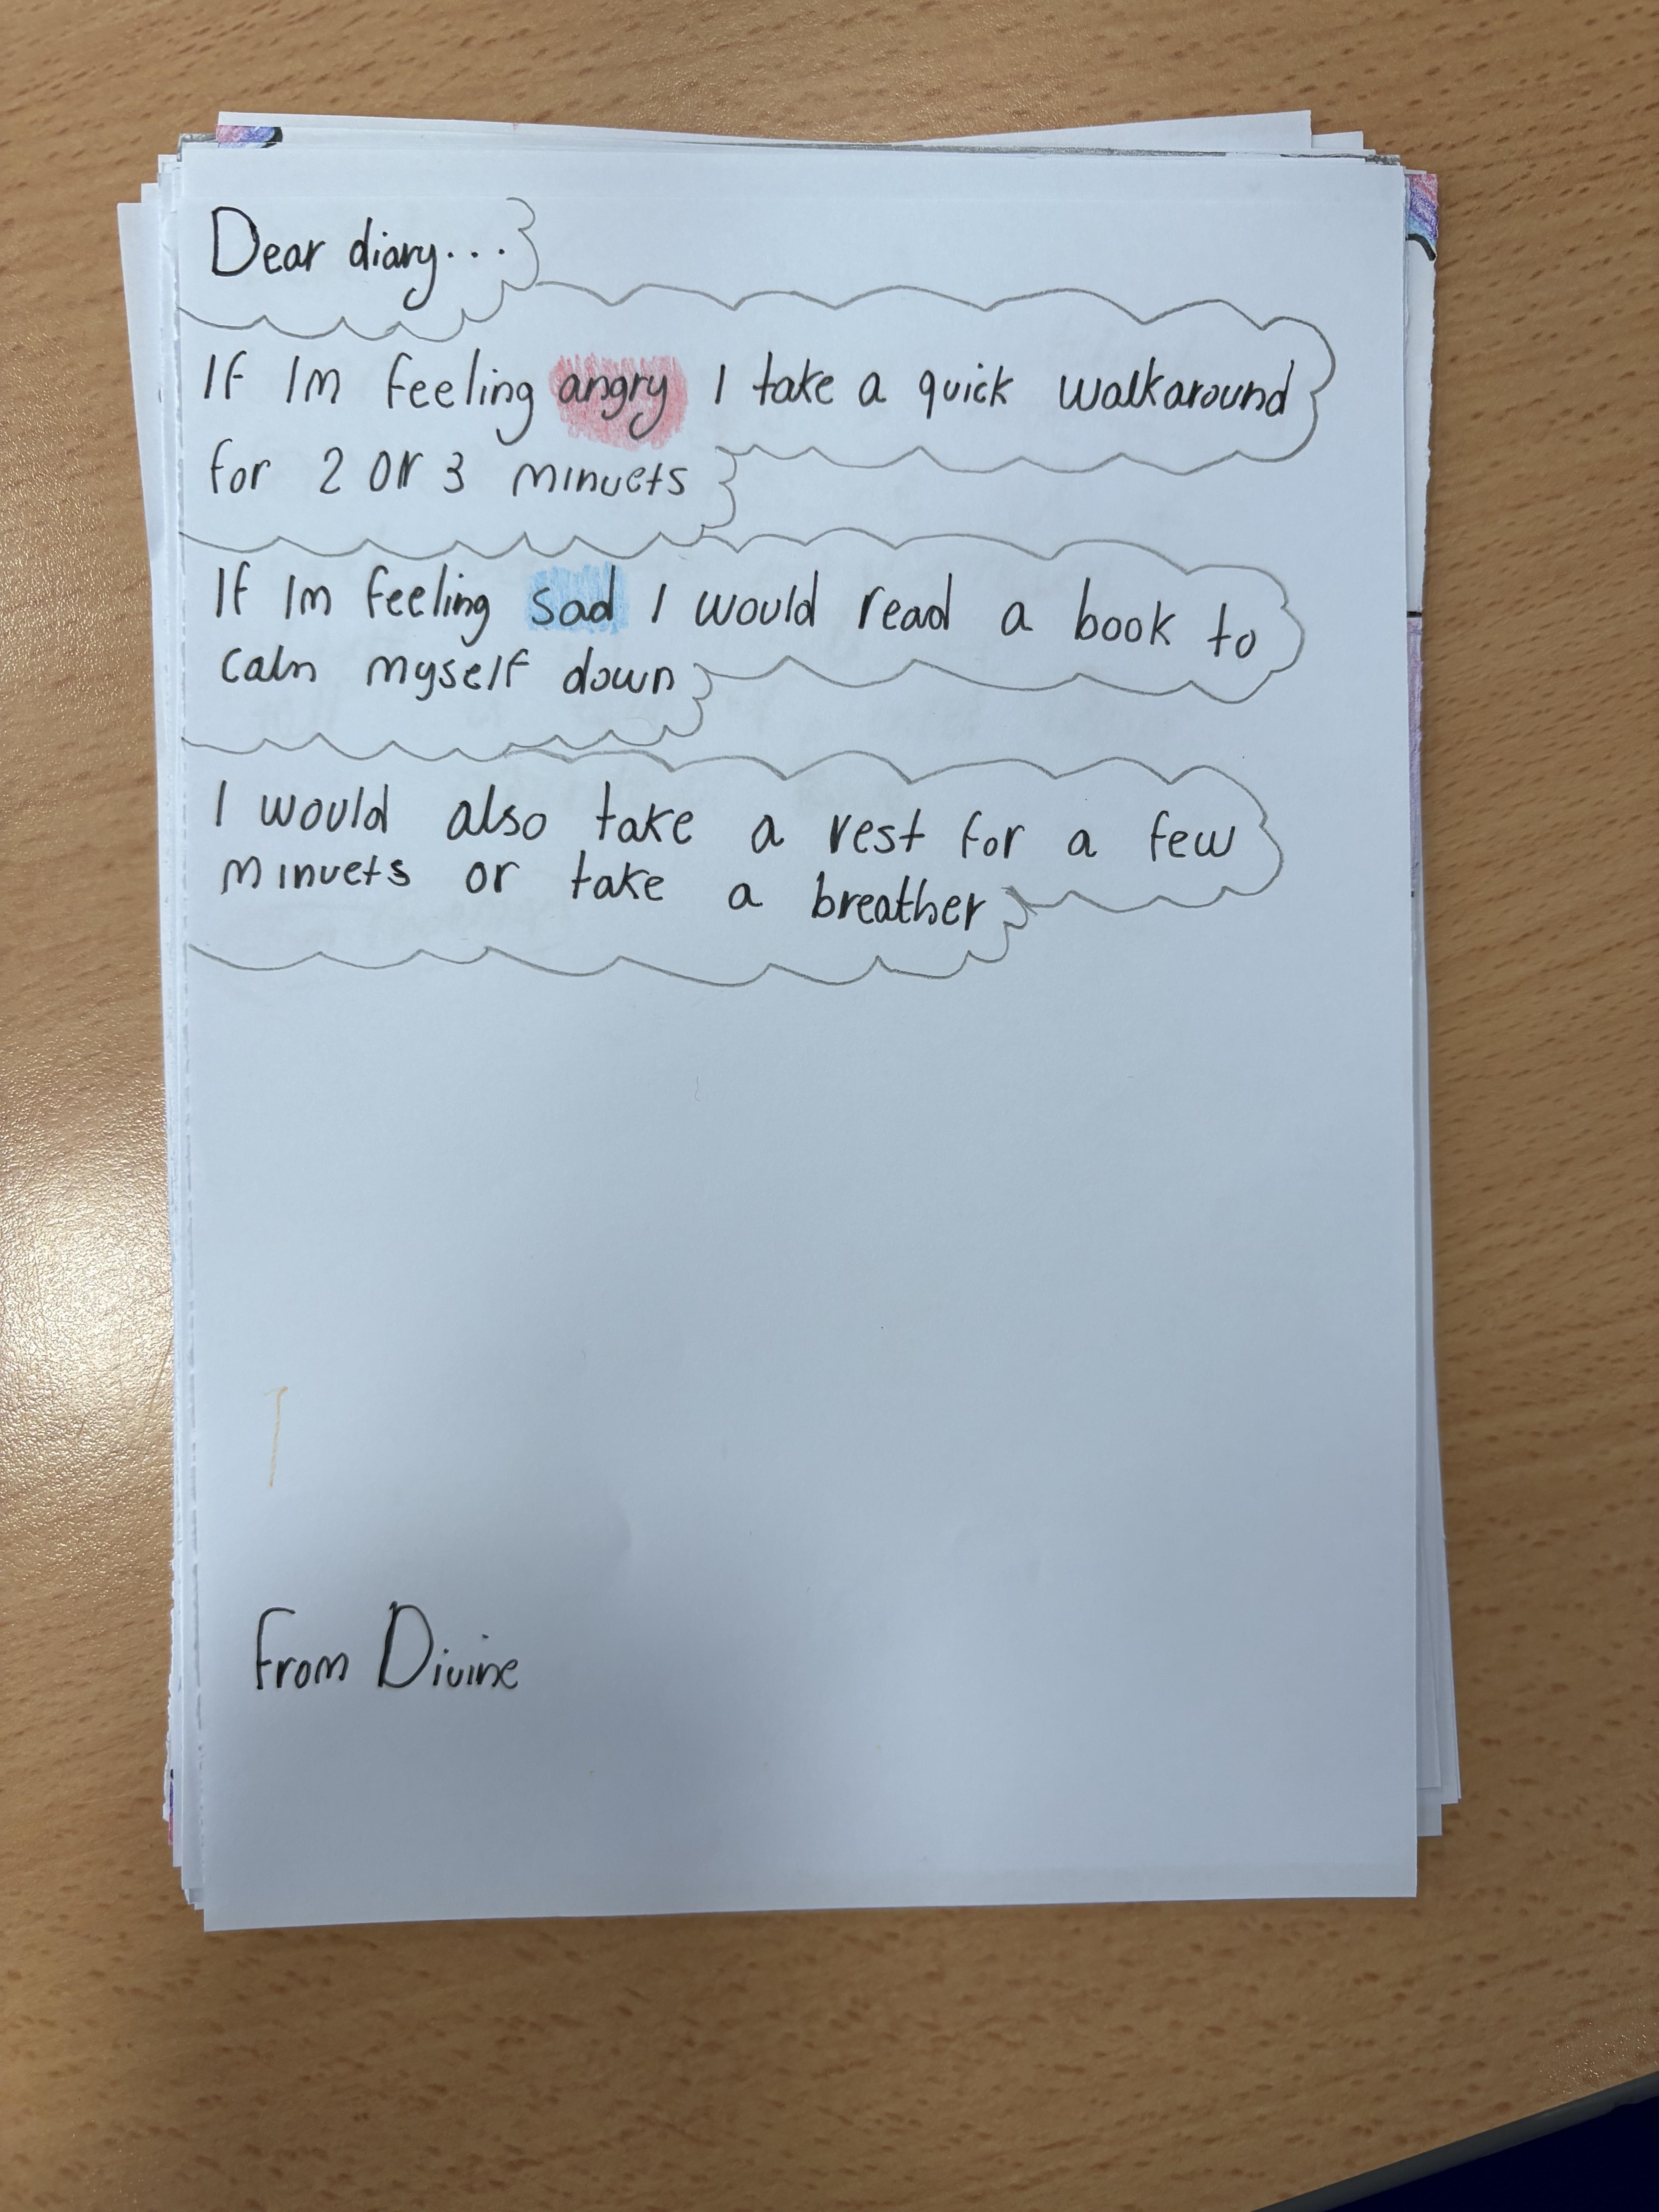 Dear diary...
If Im feeling angry I take a quick walkaround
for 2 or 3 minuets
If Im feeling sad I would read a book to
calm myself down
I would also take a rest for a few
minuets or take a breather
from Divine